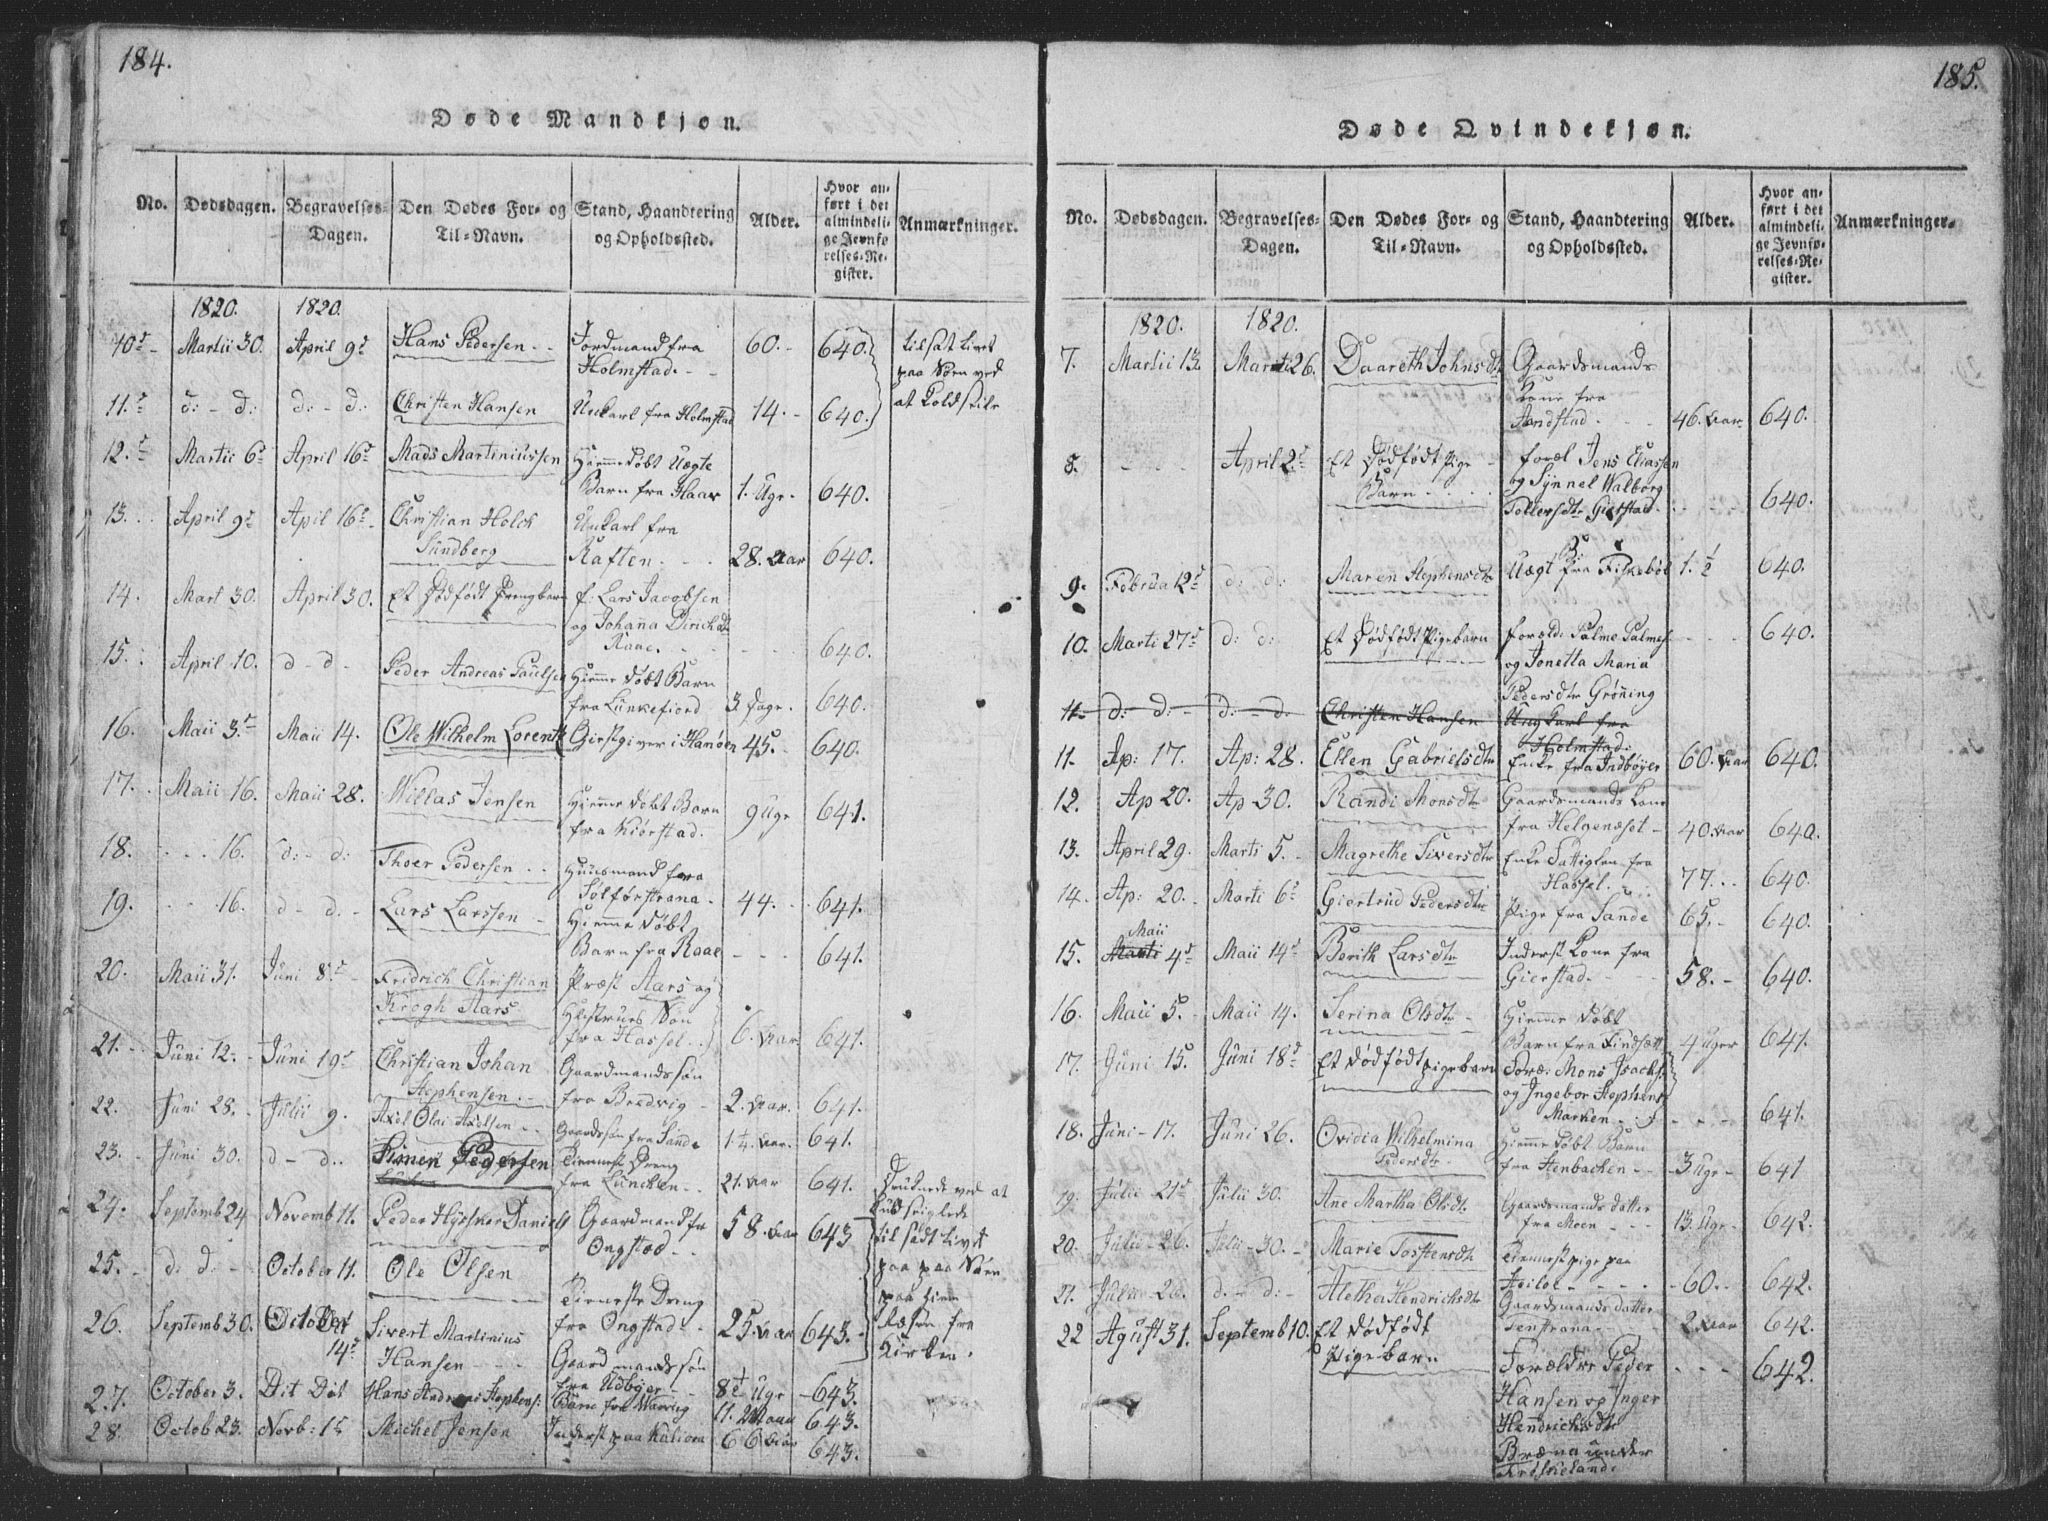 184.
Døde Mandkjøn.
No. Dødsdagen. Begravelses-Dagen. Den Dødes For- og Til-Navn. Stand, Haandtering og Opholdssted. Alder. Hvor anført i det almindelige Jevnførelses-Register. Anmærkninger.
1820. 1820.
10 Martii 30. April 9 Hans Pedersen Jordmand fra Holmstad. 60. 640. tilsat Livet paa Søen ved at
11. d: - d: d: - d: Christen Hansen Unkarl fra Holmstad 14. 640.
12. Martii 6 April 16 Mads Martiniussen Hiemmedøbt Uægte Barn fra Haar 1. Ugr. 640.
13. April 9 Apil 16 Christian Holck Sundberg Unkarl fra Raften. 28. Aar 640.
14. Mart 30. April 30. Et Dødfødt Drengbarn f: Lars Jacobsen og Johanna Raae. 640.
15. April 10. d - d - Peder Andreas Paulsen Hiemme døbt Barn fra Lunkefiord 3 Dage. 640.
16. Maii 3 Maii 14. Ole Wilhelm Lorentz Giestgiver i Hanøen 45. 640.
17. Maii 16. Maii 28. Willas Jensen Hiemme døbt Barn fra Kiørstad. 9 Ugr 641.
18. 16. d: - d: Thoer Pedersen Huusmand fra 44. 641.
19. 16. d - d. Lars Larssen Hiemme døbt Barn fra Raae 641.
20. Maii 31. Juni 8 Fridrich Christian Krogh Aars Præst Aars og Hustrues Søn fra Hassel. 6. Aar 641.
21. Juni 12. Juni 19 Christian Johan Stephensen Gaardmandssøn fra Bredvig 2. Aar. 641.
22. Juni 28. Julii 9. Axel Olai Axelsen Gaardssøn fra Sande 1 1/4. Aar. 641.
23. Juni 30. d - d. Simen Pedersen Tieneste Dreng fra Luncken 21. Aar 641.
24. Septemb 24 Novemb 11. Peder Hyssner Daniels Gaardmand fr Ongstad 58. Aar 643 Druknede ved at
25. d: d: October 11. Ole Olsen Tieneste Dreng fra Ongstad 25. Aar 643. til sadt Livet paa paa Søen paa fra Kirken.
26. Septemb 30. October 14 Sivert Martinius Hansen Gaardmandssøn fra Udbyer 8 1/2 Ugr 643.
27. October 3. Dit Dit Hans Andreas Stephens: Barn fra Warvig 11. Maan 643.
28. Octob 23. Novb: 15 Michel Jensen Inderst paa Kaliora 66 Aar 643.
185.
Døde Qvindekjøn.
No. Dødsdagen. Begravelses-Dagen. Den Dødes For- og Til-Navn. Stand, Haandtering og Opholdssted. Alder. Hvor anført i det almindelige Jevnførelses-Register. Anmærkninger.
1820. 1820.
7. Martii 13. Marti 26. Daareth Johnsdtr Gaardsmands Kone fra Sandstad 46. Aar 640.
8. April 2 Et Dødfødt Pige Barn foræl Jens Eliassen og Synnel Walborg Tollersdtr Gierstad 640.
9. Februa 12 d: d: Maren Stephensdtr Uægt B: fra Fiskebøl 1. 1/2 640.
10. Marti 27 d: d: Et Dødfødt Pigebarn foræld: Palme Palmes: og Jonetta Maria Pedersdtr Grøning 640.
11 d: d: d: - d Christen Hansen Ungkarl fra Holmstad.
11. Ap: 17. Ap: 28. Ellen Gabrielsdtr Enke fra Indbøyer 60. Aar 640.
12. Ap 20. Ap 30. Randi Monsdtr Gaardsmands Kone fra Helgenæset 40. Aar 640.
13. April 29. Marti 5. Magrethe Siversdtr Enke Fattiglem fra Hassel. 77. 640.
14. Ap: 20. Marti 6 Giertrud Pedersdtr Pige fra Sande 65. 640.
15. Marti Maii 4 Maii 14 Berith Larsdtr Inderst Kone fra Gierstad 58. 640.
16. Maii 5. Maii 14. Serina Olsdtr Hiemme døbt Barn fra Findsætt 4 Uger 641.
17. Juni 15. Juni 18 Et Dødfødt Pigebarn Foræ: Mons Isachs: og Ingebor Stephens Marken 641.
18. Juni 17. Juni 26. Ovidia Wilhelmina Pedersdtr Hiemme døbt Barn fra Stenbacken 3 Ugr 641
19. Julii 21 Julii 30. Ane Martha Olsdtr Gaardsmands datter fra Moen 13. Ugr 642.
20. Julii 26. Julii 30. Marie Tostensdtr Tienestpige paa 60. 642.
21. Julii 26. d: - d: Aletha Hendrichsdtr Gaardsmands datter 2 Aar 642.
22 Agust 31. Septemb 10. Et dødfødt Pigebarn Forældre Peder Hansen og Inger Hendrichsdtr Bræna under 642.